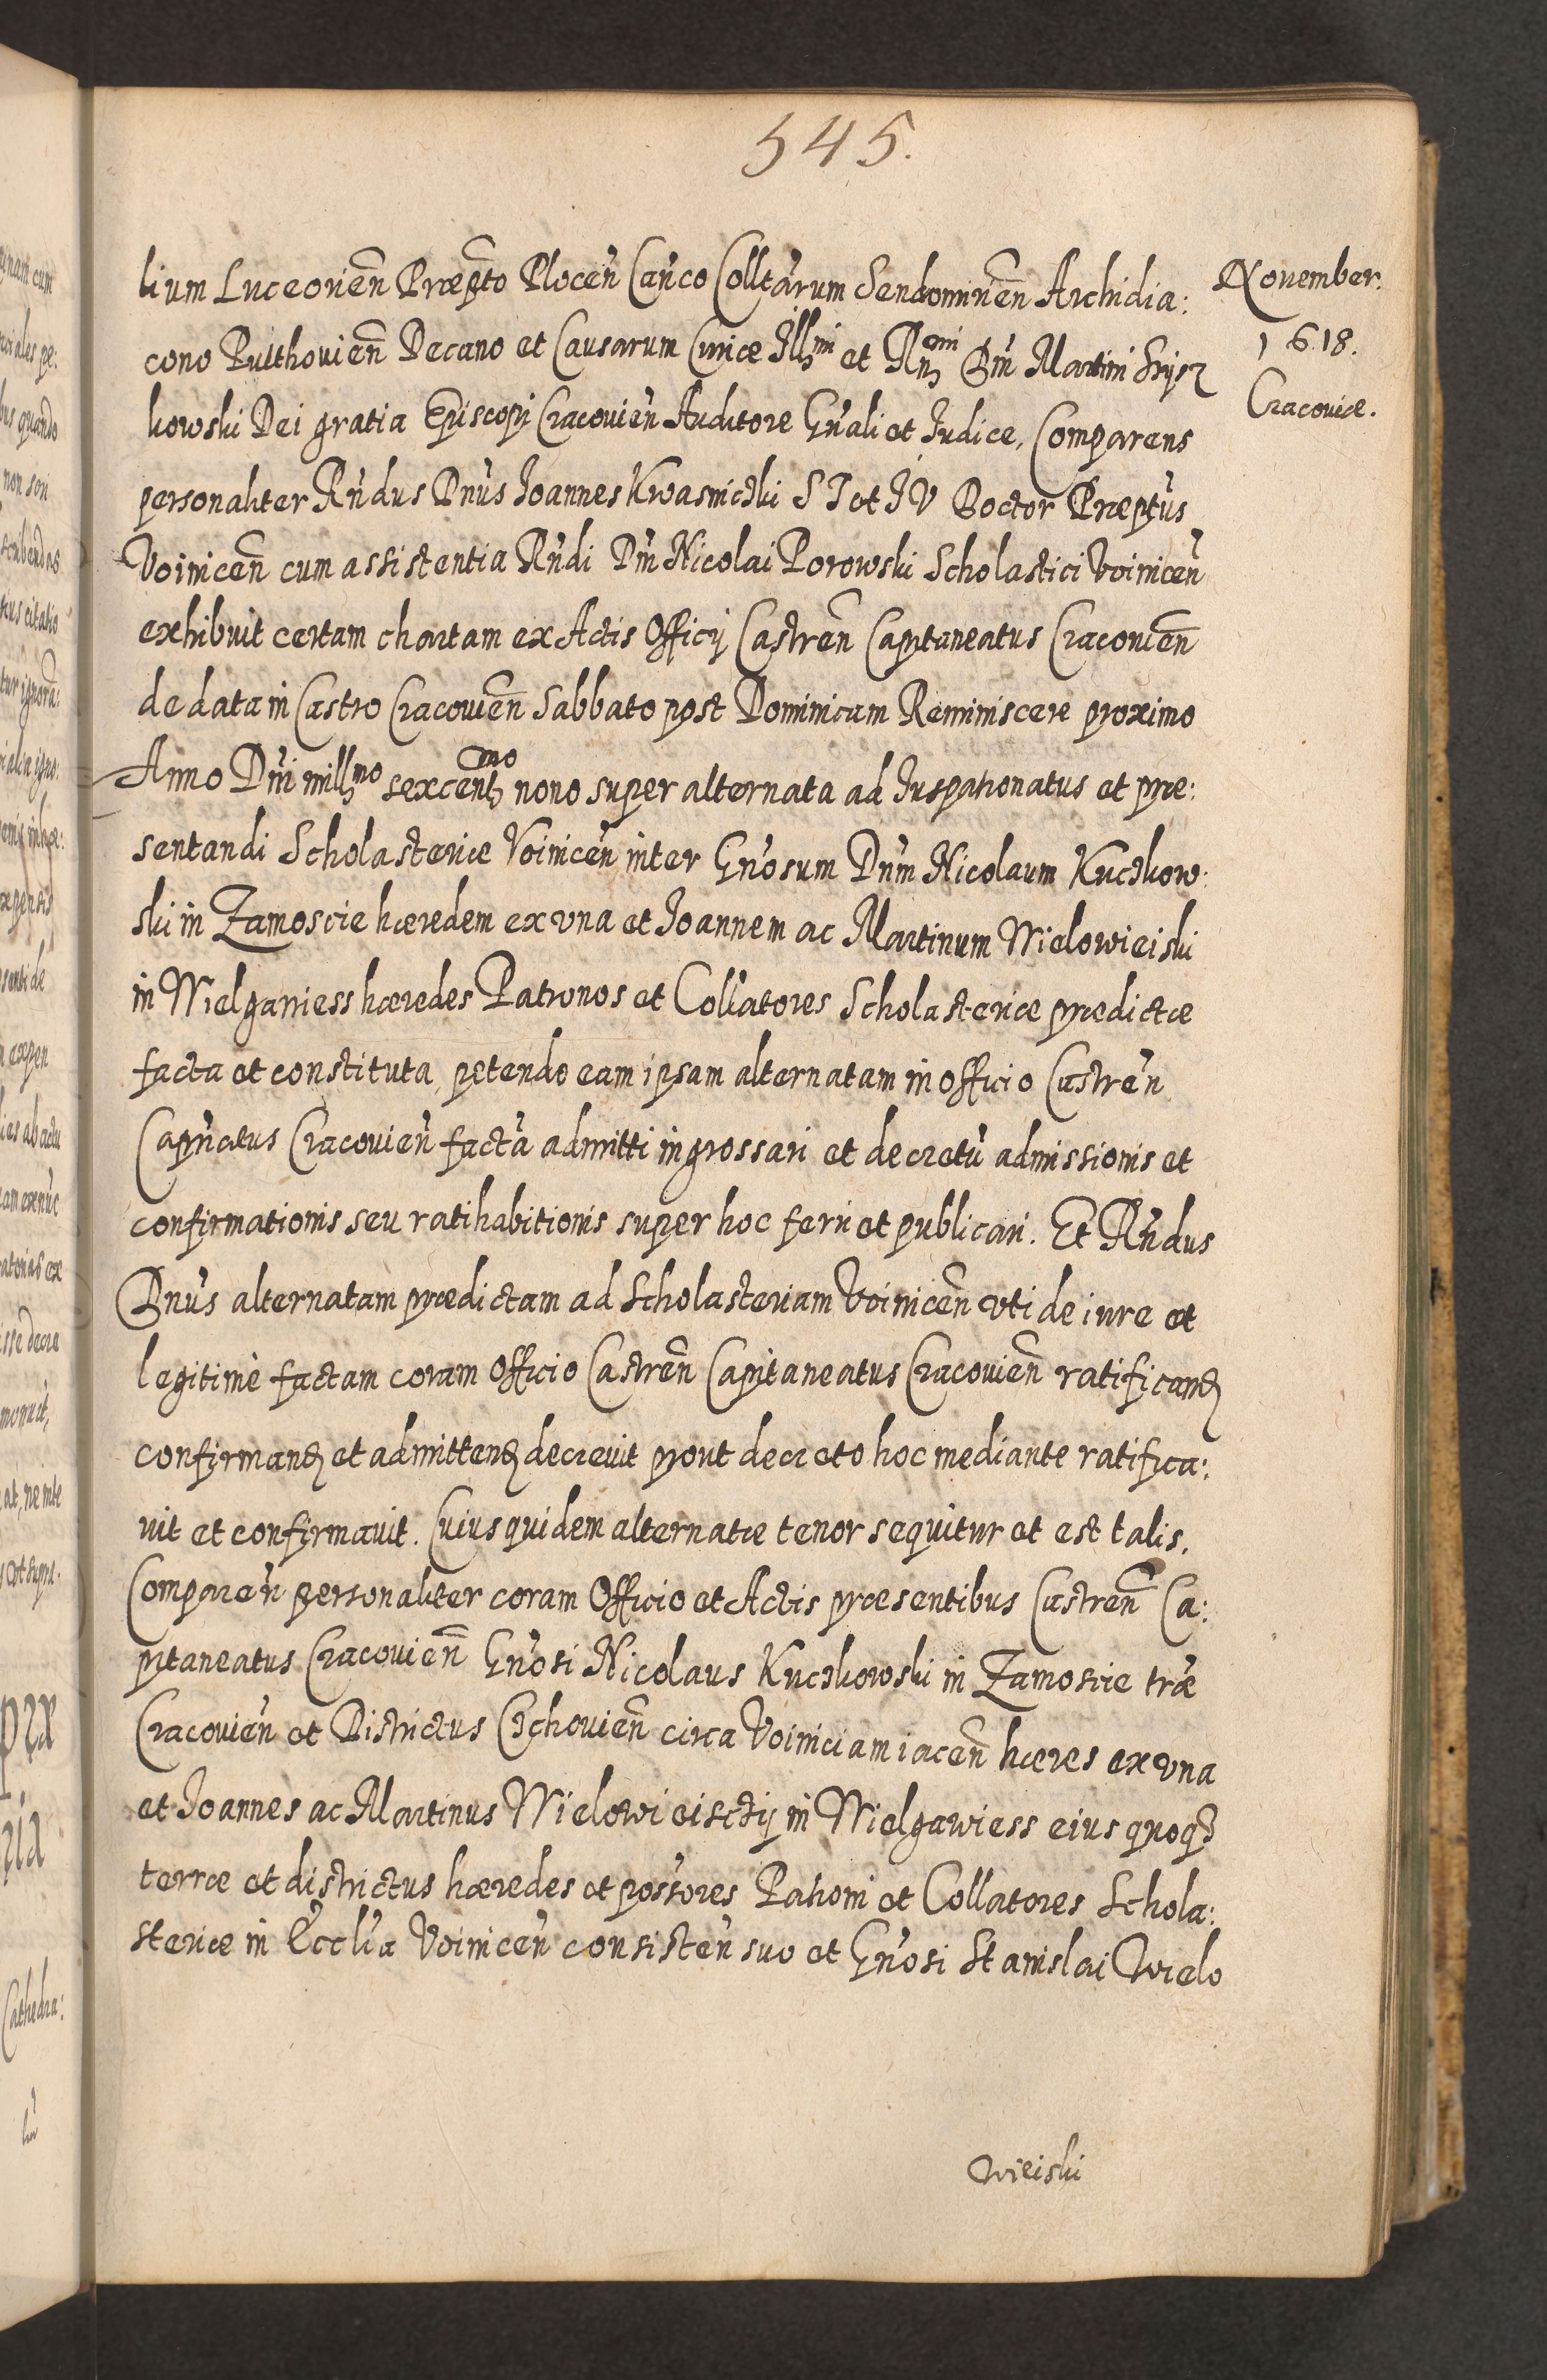 545.
November.
1618.
Cracoviæ.
lium Luceorien̄ Præp̄to Plocen̄ Can̄co Colltarum Sendomirien̄ Archidia:
cono Pulthovien̄ Decano et Causarum Curiæ Illmi et Rn̄emi Dn̄i Martini Szysz
kowski Dei gratia Ep̄iscopi Cracovien̄ Auditore Gn̄ali et Iudice, Comparens
personaliter Rn̄dus Dn̄us Joannes Kwasnicзki S T et J V Doctor Præp̄tus
Voinicen̄ cum assistentia Rn̄di Dn̄i Nicolai Porowski Scholastici Voinicen̄
exhibuit certam chartam ex Actis Officij Castren̄ Capitaneatus Cracovien̄
de data in Castro Cracovien̄ Sabbato post Dominicam Reminiscere proximo
Anno Dn̄i millmo sexcentmo nono super alternata ad Juspatronatus et præ:
sentandi Scholasteriæ Voinicen̄ inter Gn̄osum Dn̄m Nicolaum Kuczkow:
ski in Zamoscie hæredem ex vna et Joannem ac Martinum Wielowieiski
in Wielgawiess hæredes Patronos et Collatores Scholasteriæ prædictæ
facta et constituta, petendo eam ipsam alternatam in officio Castren̄
Capn̄eatus Cracovien̄ factā admitti ingrossari et decretū admissionis et
confirmationis seu ratihabitionis super hoc ferri et publicari. Et Rn̄dus
Dn̄us alternatam prædictam ad Scholasteriam Voinicen̄ vti de iure et
legitimè factam coram Officio Castren̄ Capitaneatus Cracovien̄ ratificand
confirmand et admittend decrevit prout decreto hoc mediante ratifica:
vit et confirmavit. Cuius quidem alternatæ tenor sequitur et est talis.
Comparen̄ personaliter coram Officio et Actis præsentibus Castren̄ Ca:
pitaneatus Cracovien̄ Gn̄osi Nicolaus Kuczkowski in Zamoscie træ
Cracovien̄ et Districtus Czchovien̄ circa Voiniciam iacen̄ hæres ex vna
et Joannes ac Martinus Wielowieisczij in Wielgawiess eius quoqз
terræ et districtus hæredes et possores Patroni et Collatores Schola:
steriæ in Eccl̄ia Voinicen̄ consisten̄ suo et Gn̄osi Stanislai Wielo
wieiski